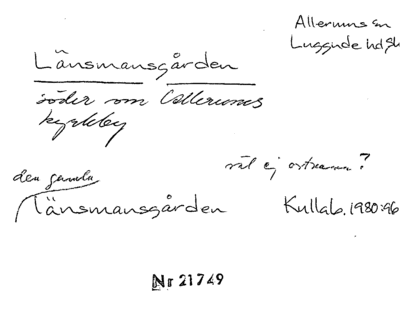 Allerums sn
Luggude hd Sk
Länsmansgården
söder om Allerums
kyrkby
väl ej ortnamn?
den gamla
länsmansgården Kullab. 1980:96
Nr 21749